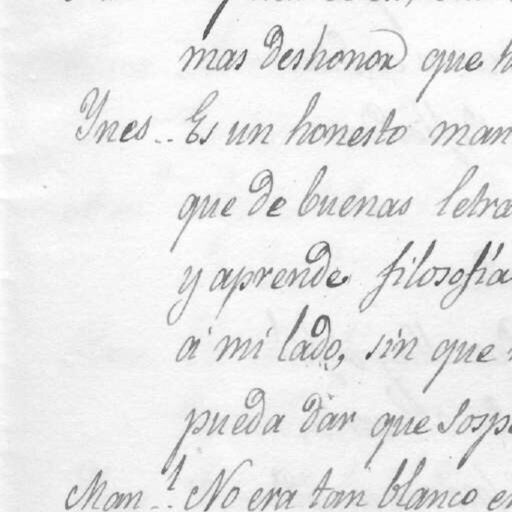 mas deshonor que h
Ynes.. Es un honesto man
que de buenas letra
y aprende filosofía
a mi lado, sin que
pueda dar que sosp
Man..l No era tan blanco en